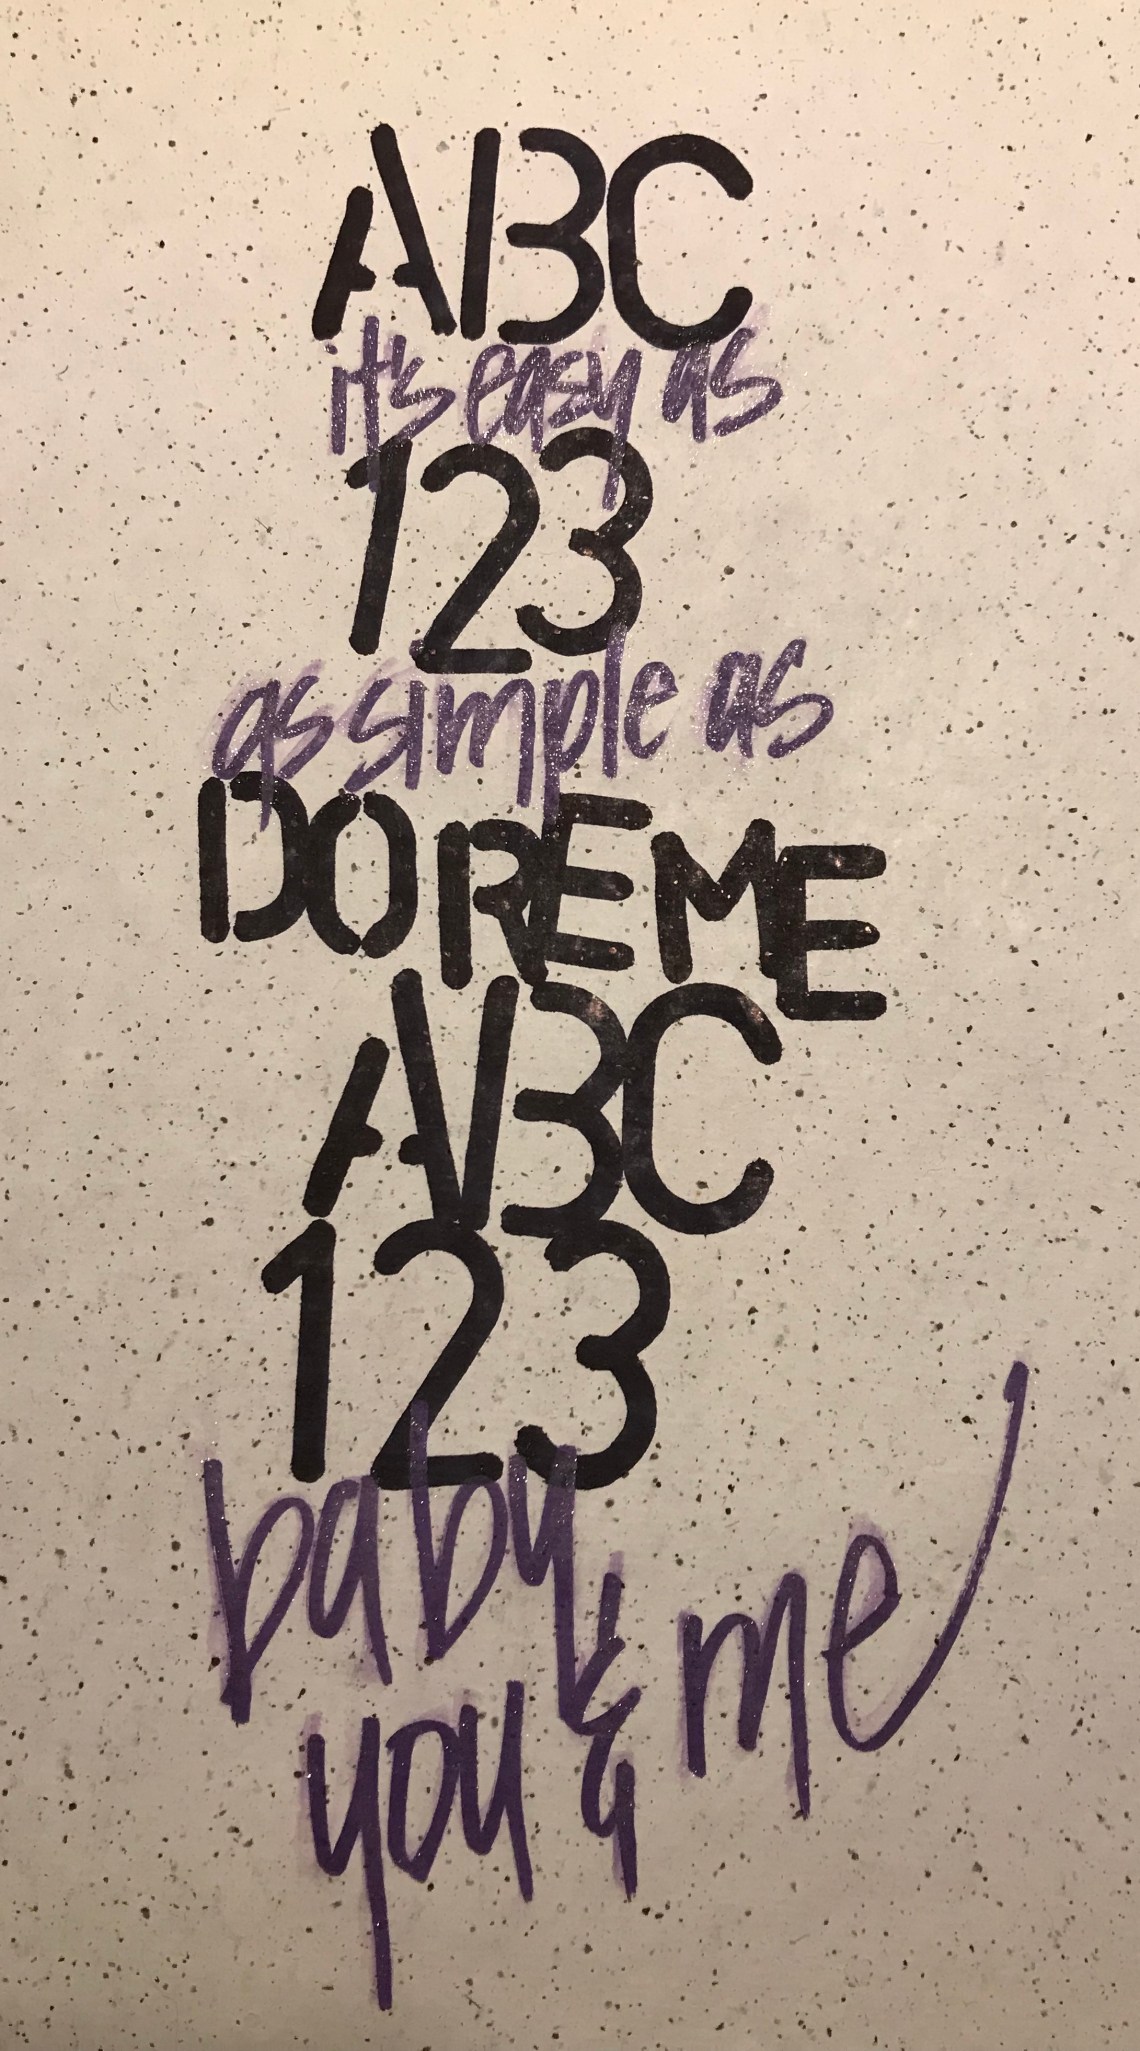 ABC
it's easy as
123
as simple as
DO RE ME
ABC
123
baby
you & me